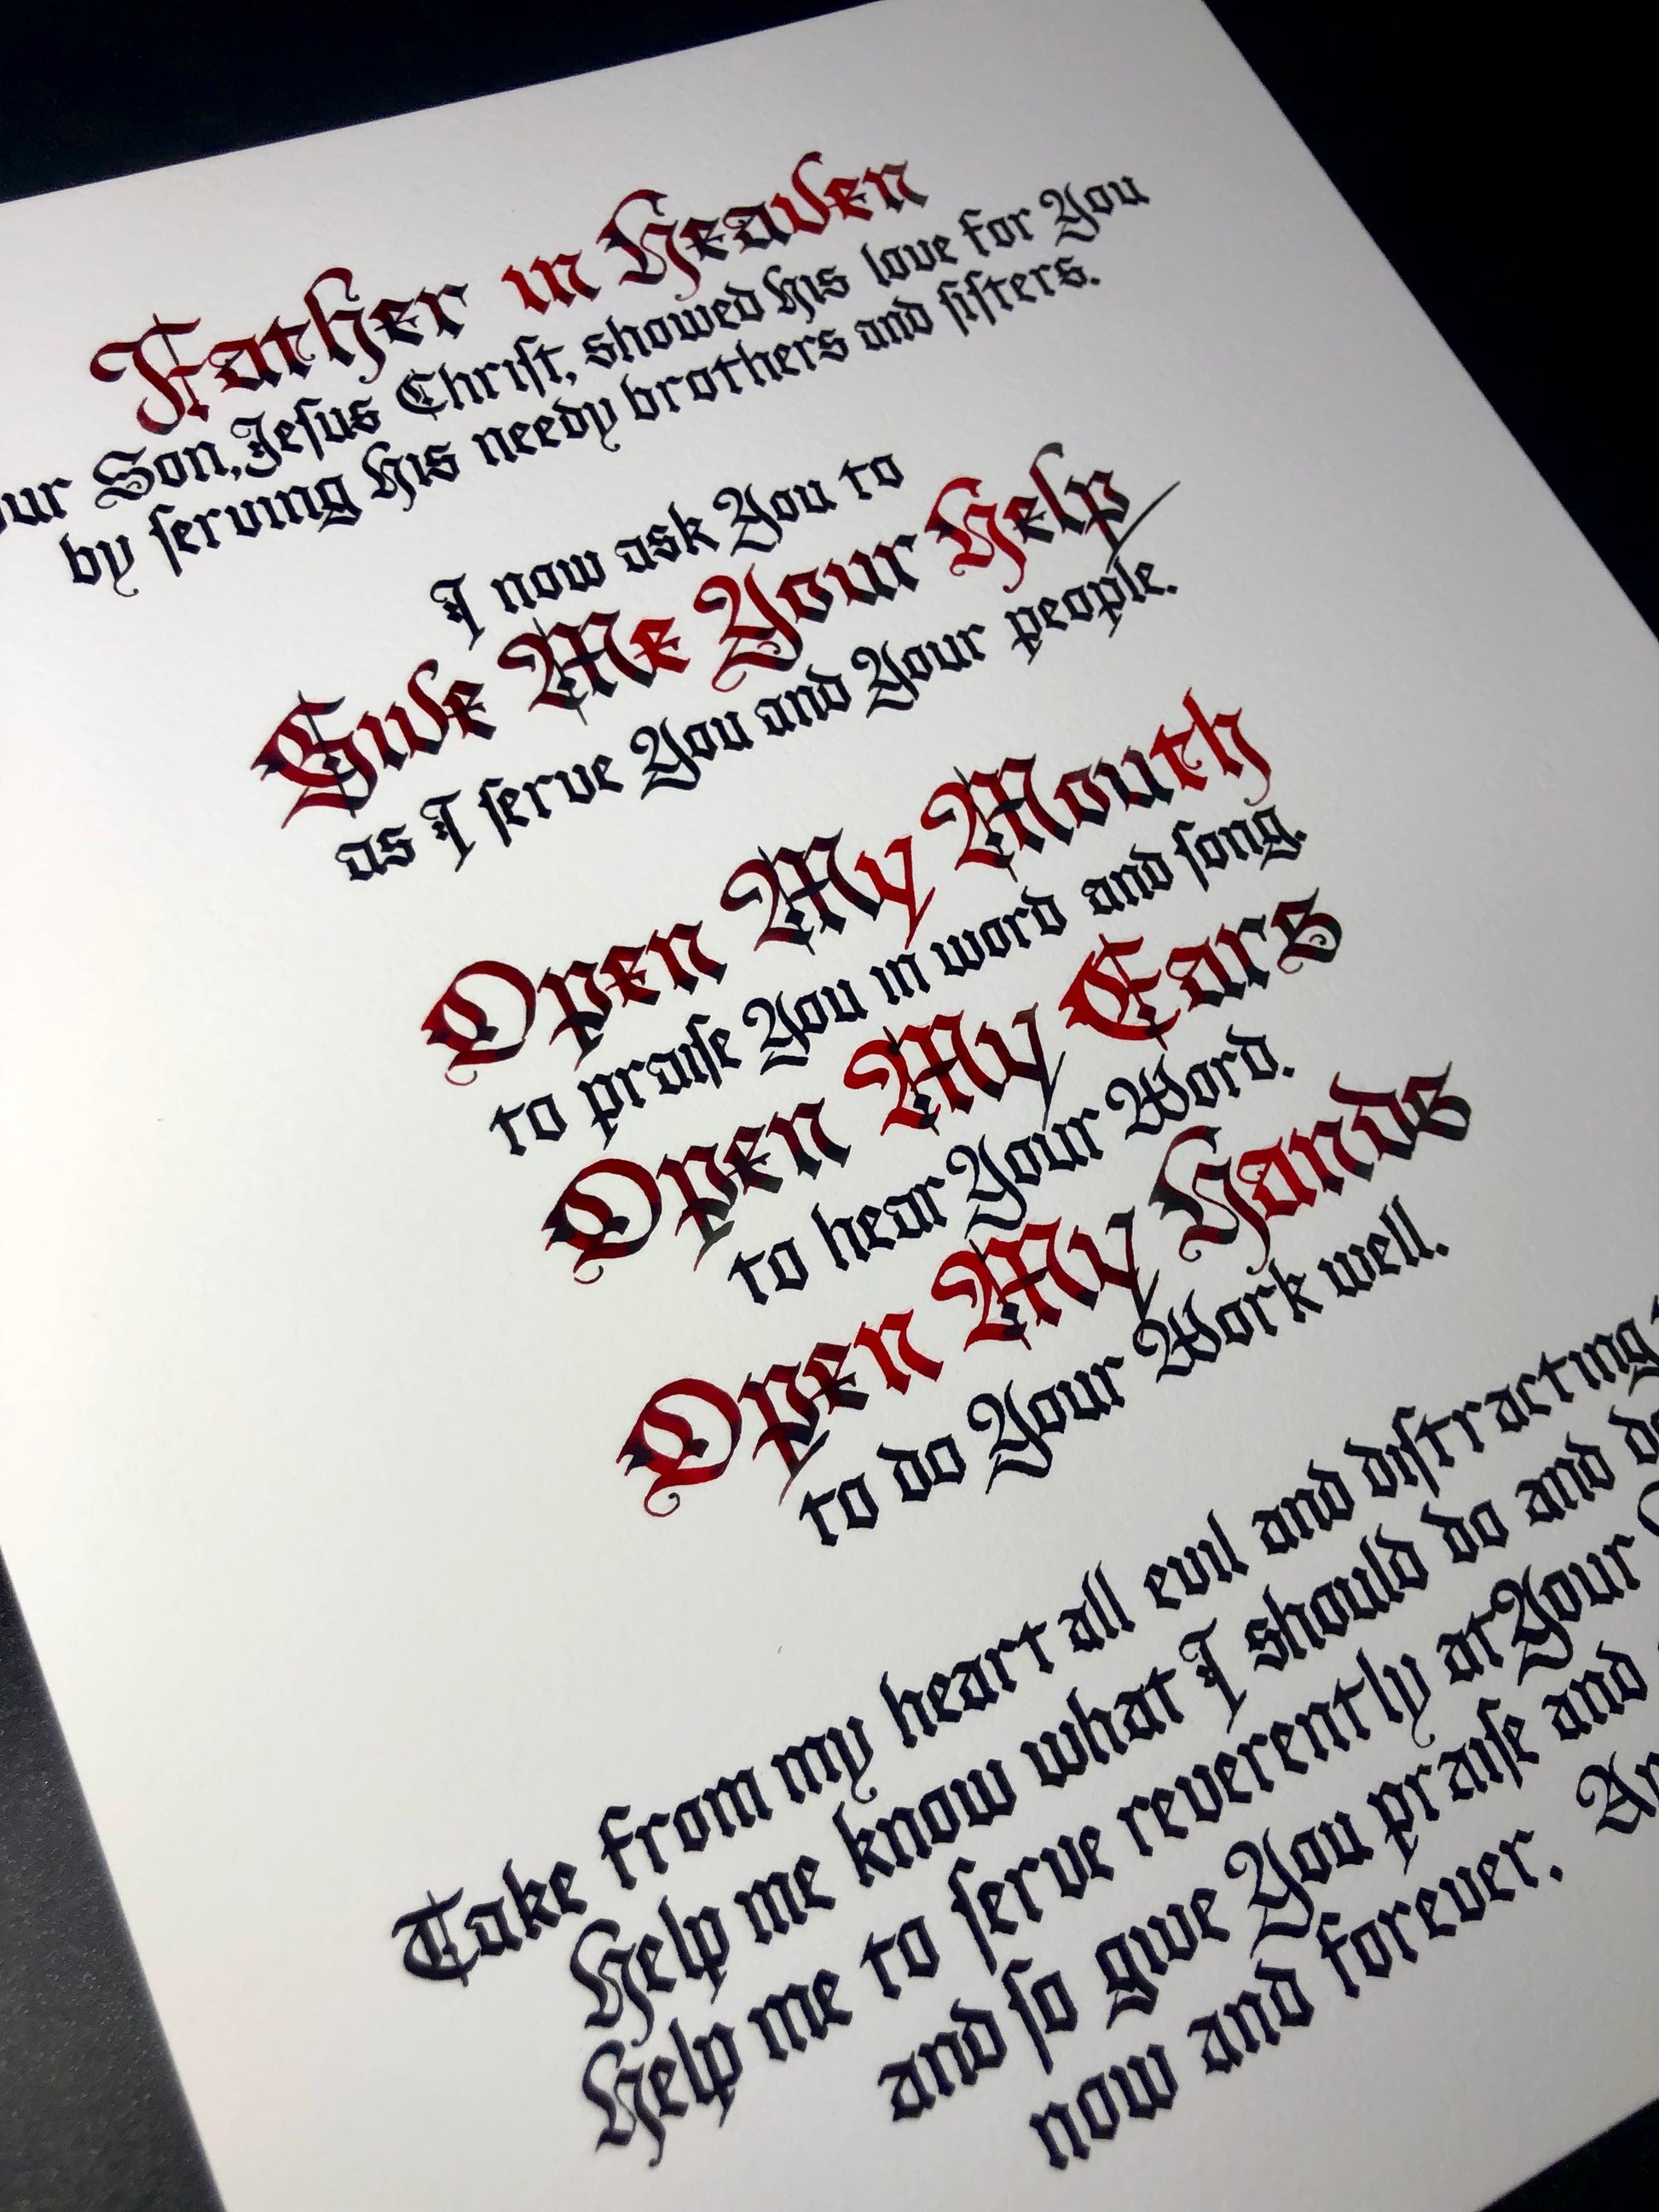 Father in Heaven
Son, Jeſus Chriſt, showed His love for You
by ſerving His needy brothers and ſiſters.
I now ask You to
Give Me Your Help
as I ſerve You and Your people.
Open My Mouth
to praiſe You in word and ſong.
Open My Ears
to hear Your Word.
Open My Hands
to do Your Work well.
Take from my heart all evil and diſtracting
Help me know what I should do and
Help me to ſerve reverently at Your
and ſo give You praiſe and
now and forever.